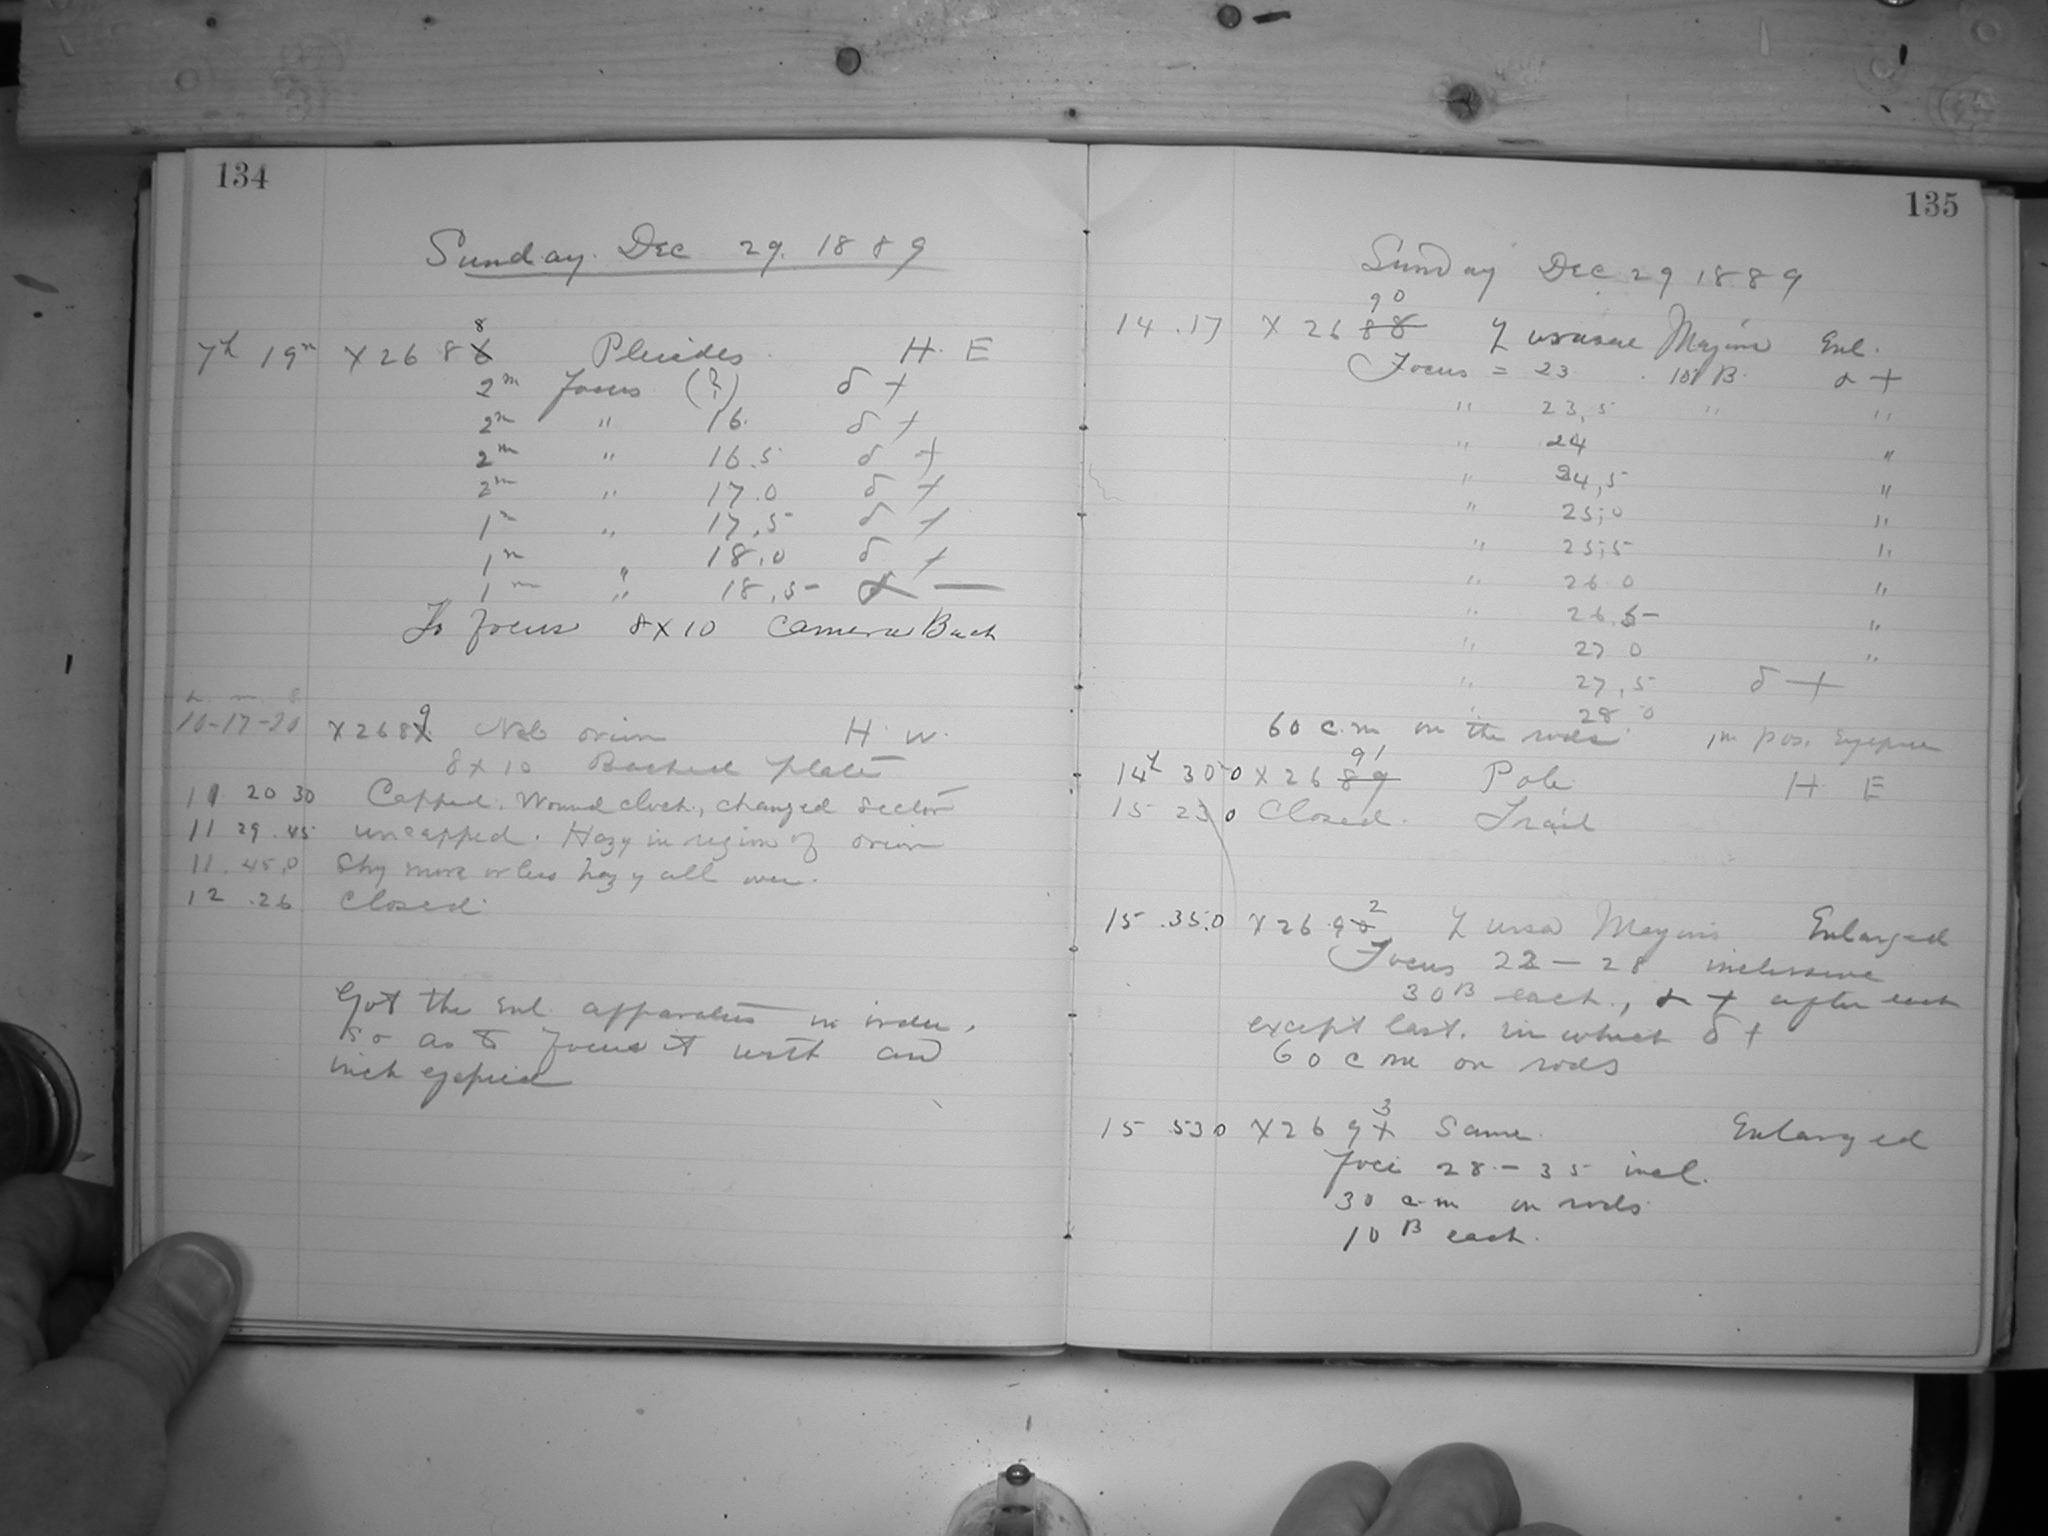 134
Sunday. Dec 29. 1889
8
7h 19m X 26 86 Pleiades. H. E
2m focus (?) δ +
2m " 16. δ +
2m " 16.5 δ +
2m " 17.0 δ +
1m " 17.5 δ +
1m " 18.0 δ +
1m " 18.5 —
To focus 8x10 Camera Back
h. m s.
9
10-17-20 X 268 Neb orion H. W.
8x10 Backed plate
11 20 30 Capped. Wound clock, changed sector
11 29.45 uncapped. Hazy in region of orion
11.45.0 Sky more or less hazy all over.
12.26 Closed.
Got the enl. apparatus in order,
so as to focus it with an
inch eyepiece
135
Sunday Dec 29 1889
90
14.17 X 26 88 Majoris Enl.
Focus = 23 . 10 B. +
" 23,5 " "
" 24 "
" 24,5 "
" 25,0 "
" 25,5 "
" 26 0 "
" 26,5 "
" 27 0 "
" 27,5 δ +
" 28 0
60 c.m on the rods. 1m pos. eyepiece
91
14h 30 0 X 26 89 Pole H E
15 23 0 Closed. Trail
2
15.35.0 X 26 90 ζ ursa Majoris Enlarged
Focus 22 — 28 inclusive
30B each., + after each
except last. in which δ +
60 c m on rods
3
15 53 0 X 26 9 Same. Enlarged
foci 28 - 35 incl.
30 c.m on rods
10 B each.